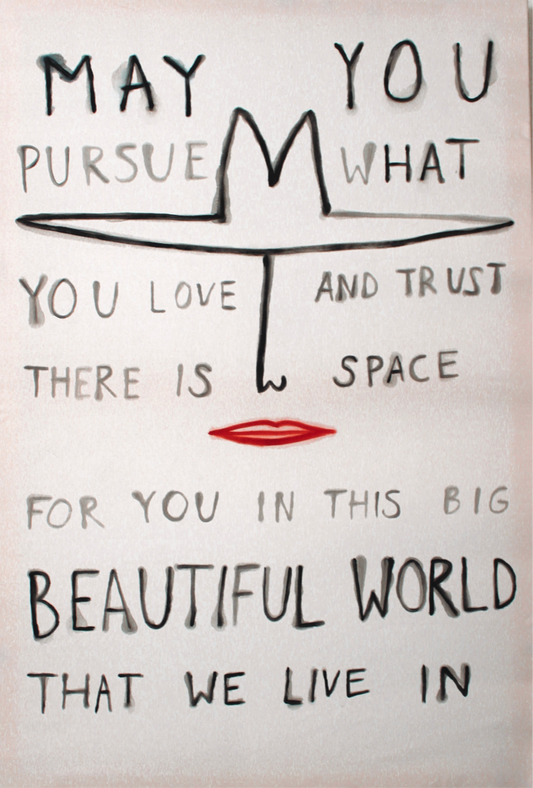 MAY YOU
PURSUE WHAT
YOU LOVE AND TRUST
THERE IS SPACE
FOR YOU IN THIS BIG
BEAUTIFUL WORLD
THAT WE LIVE IN